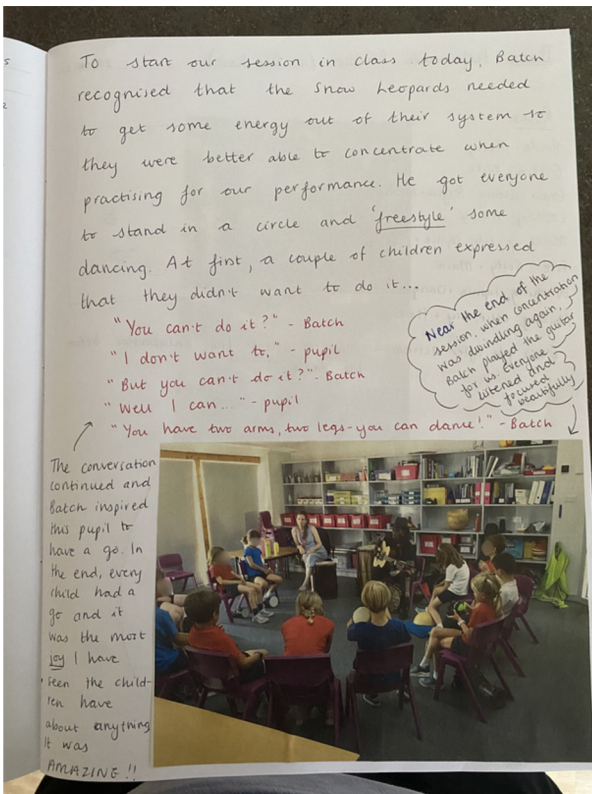 To start our session in class today, Batch
recognised that the Snow Leopards needed
to get some energy out of their system so
they were better able to concentrate when
practising for our performance. He got everyone
to stand in a circle and 'freestyle' some
dancing. At first, a couple of children expressed
that they didn't want to do it...
"You can't do it?" - Batch
"I don't want to," - pupil
"But you can't do it?". Batch
"Well I can..." - pupil
"You have two arms, two legs - you can dance!" - Batch
Near the end of the
session, when concentration
was dwindling again,
Batch played the guitar
for us. everyone
listened and
focused
beautifully
The conversation
continued and
Batch inspired
this pupil to
have a go. In
the end, every
child had a
go and it
was the most
joy I have
seen the child-
ren have
about anything
It was
AMAZING!!